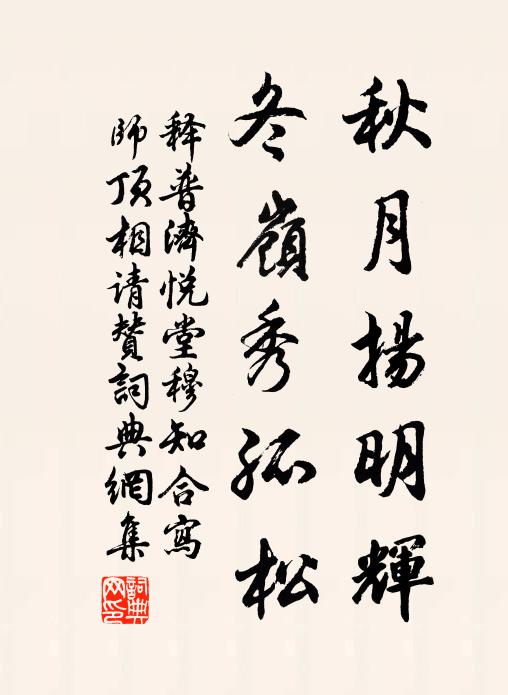 秋月揚明輝
冬嶺秀孤松
释普濟悦堂穆知合寫
師顶相请赞詞典網集
詞典網印